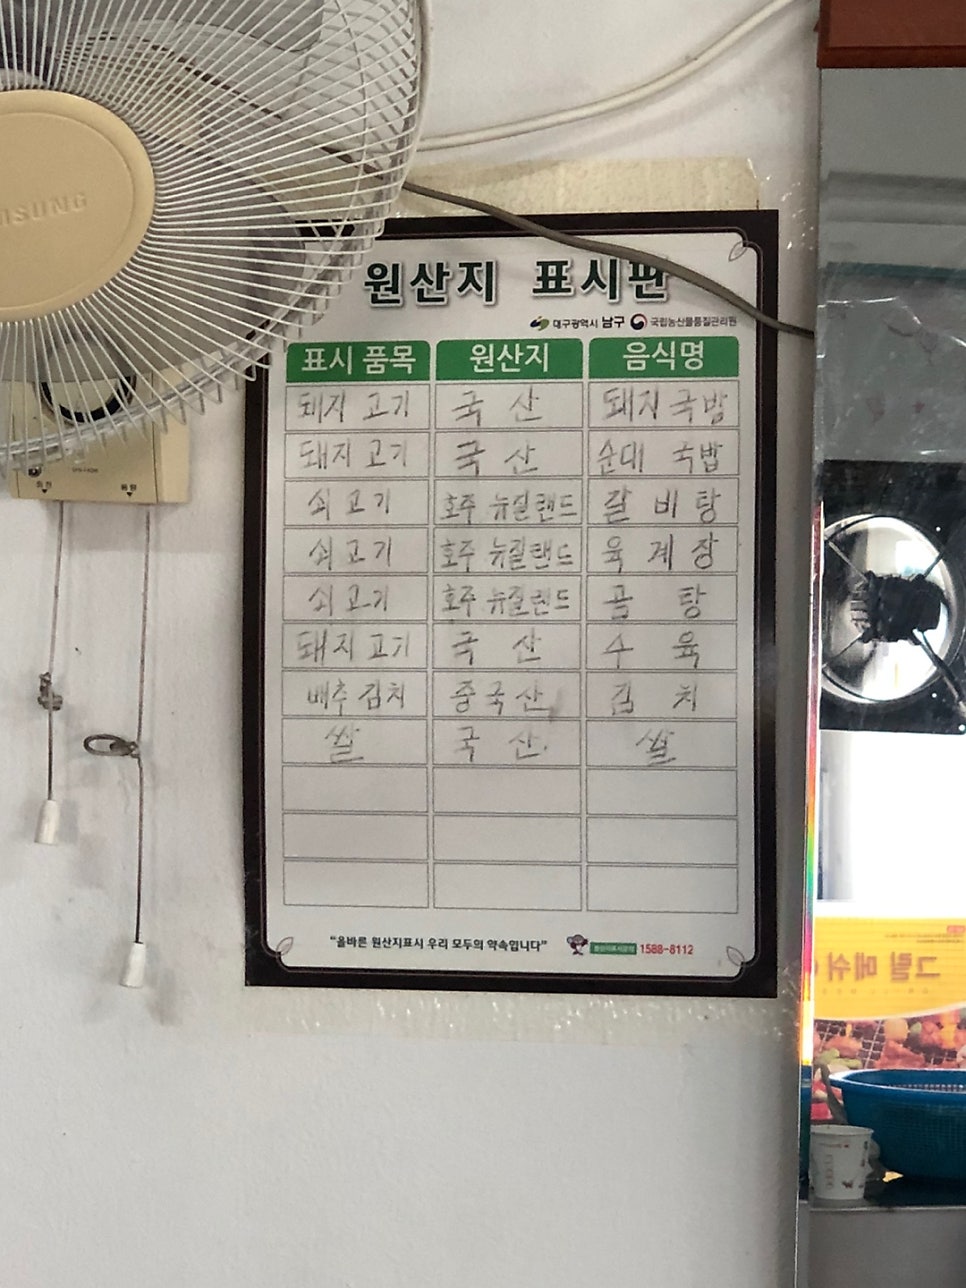 SUNG
원산지 표시판
대구광역시 남구 국립농산물품질관리원
표시 품목 원산지 음식명
돼지 고기 국 산 돼지국밥
돼지 고기 국 산 순대 국밥
쇠 고기 호주 뉴질랜드 갈 비 탕
쇠 고기 호주 뉴질랜드 육 계 장
쇠 고기 호주 뉴질랜드 곰 탕
돼지 고기 국 산 수 육
배추 김치 중국산 김 치
쌀 국 산. 쌀
"올바른 원산지표시 우리 모두의 약속입니다"
1588-8112